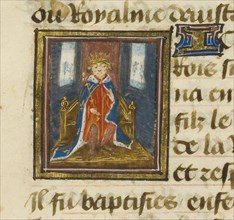 ou Royalme
C
Rois
na en
filz le
de la
et res
Il fu baptisies enfe